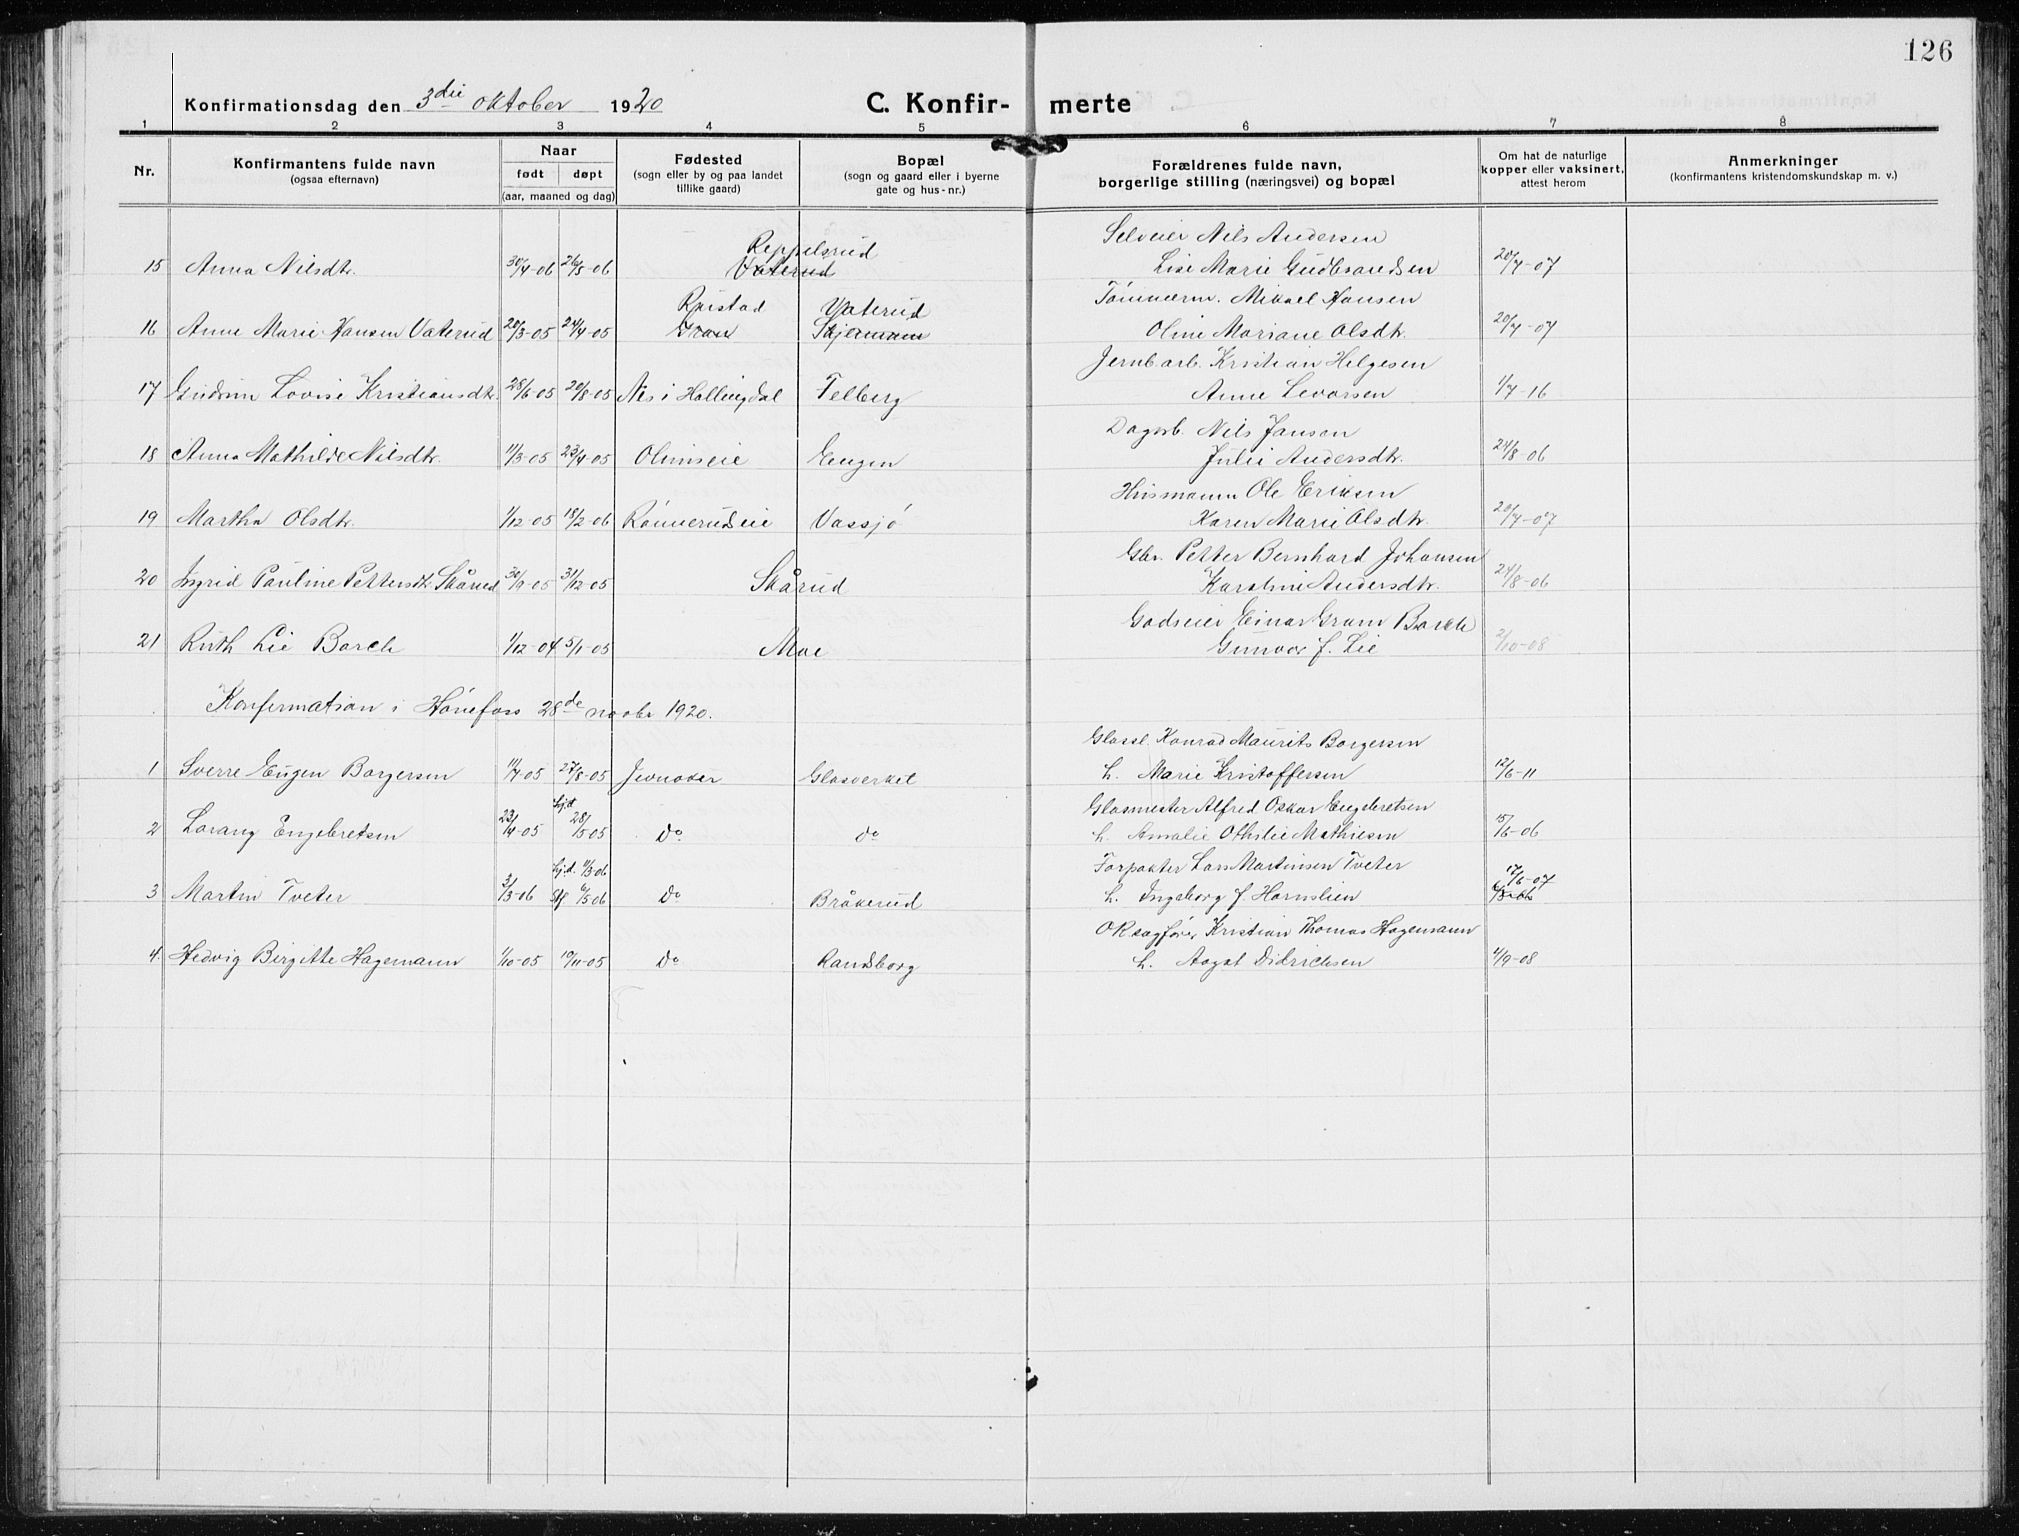 126
Konfirmationsdag den 3die oktober 1920 C. Konfir- merte
1 2 3 4 5 6 7 8
Nr.
Konfirmantens fulde navn
(ogsaa efternavn)
Naar
født døpt
(aar, maaned og dag)
Fødested
(sogn eller by og paa landet
tillike gaard)
Bopæl
(sogn og gaard eller i byerne
gate og hus-nr.)
Forældrenes fulde navn,
borgerlige stilling (næringsvei) og bopæl
Om hat de naturlige
kopper eller vaksinert,
attest herom
Anmerkninger
(konfirmantens kristendomskundskap m. v.)
Reppelsrud Selveier Nils Andersen
15 Anna Nilsdtr. 30/4-06 26/8-06 Vaterud Lise Marie Gudbrandsen 20/7-07
Vaterud Tømmerm. Mikael Hansen
16 Anne Marie Hansen Vaterud 20/3-05 24/4-05 Gran Oline Mariane Olsdtr. 20/7-07
Jernbarb. Kristian Helgesen
17 Gudrun Lovise Kristiansdtr. 28/6-05 20/8-05 Nes i Hallingdal Felberg Anne Levorsen 1/7-16
Dagarb. Nils Jansen
18 Anna Mathilde Nilsdtr. 11/3-05 23/4-05 Olimseie Engen Julie Andersdtr. 24/8-06
Husmann Ole Eriksen
19 Martha Olsdtr. 1/12-05 18/2-06 Rønnerudseie Vassjø Karen Marie Olsdtr. 20/7-07
Gbr. Petter Bernhard Johansen
20 Ingrid Pauline Pettersdtr. Skårud 30/9-05 31/12-05 Skårud Karoline Andersdtr. 24/8-06
Godseier Einar Gram Borch
21 Ruth Lie Borch 1/12-04 5/1-05 Moe Gunvor f. Lie 2/10-08
Konfirmation i Hønefoss 28de novbr 1920.
Glassl. Konrad Maurits Borgersen
1 Sverre Eugen Borgersen 11/7-05 27/8-05 Jevnaker Glasverket h. Marie Kristoffersen 12/6-11
hj.d. Glasmester Alfred Oskar Engebretsen
2 Lorang Engebretsen 23/4-05 28/5-05 do do h. Amalie Othilie Mathiesen 15/6-06
hj.d. 11/3-06 Forpakter Lars Martinsen Tveter 17/6-07
3 Martin Tveter 3/3-06 6/5-06 do Bråkerud h. Ingeborg f. Hornslien
ORsagfører Kristian Thomas Hagemann
4 Hedvig Birgitte Hagemann 1/10-05 19/11-05 do Randsborg h. Aagot Didrichsen 4/9-08